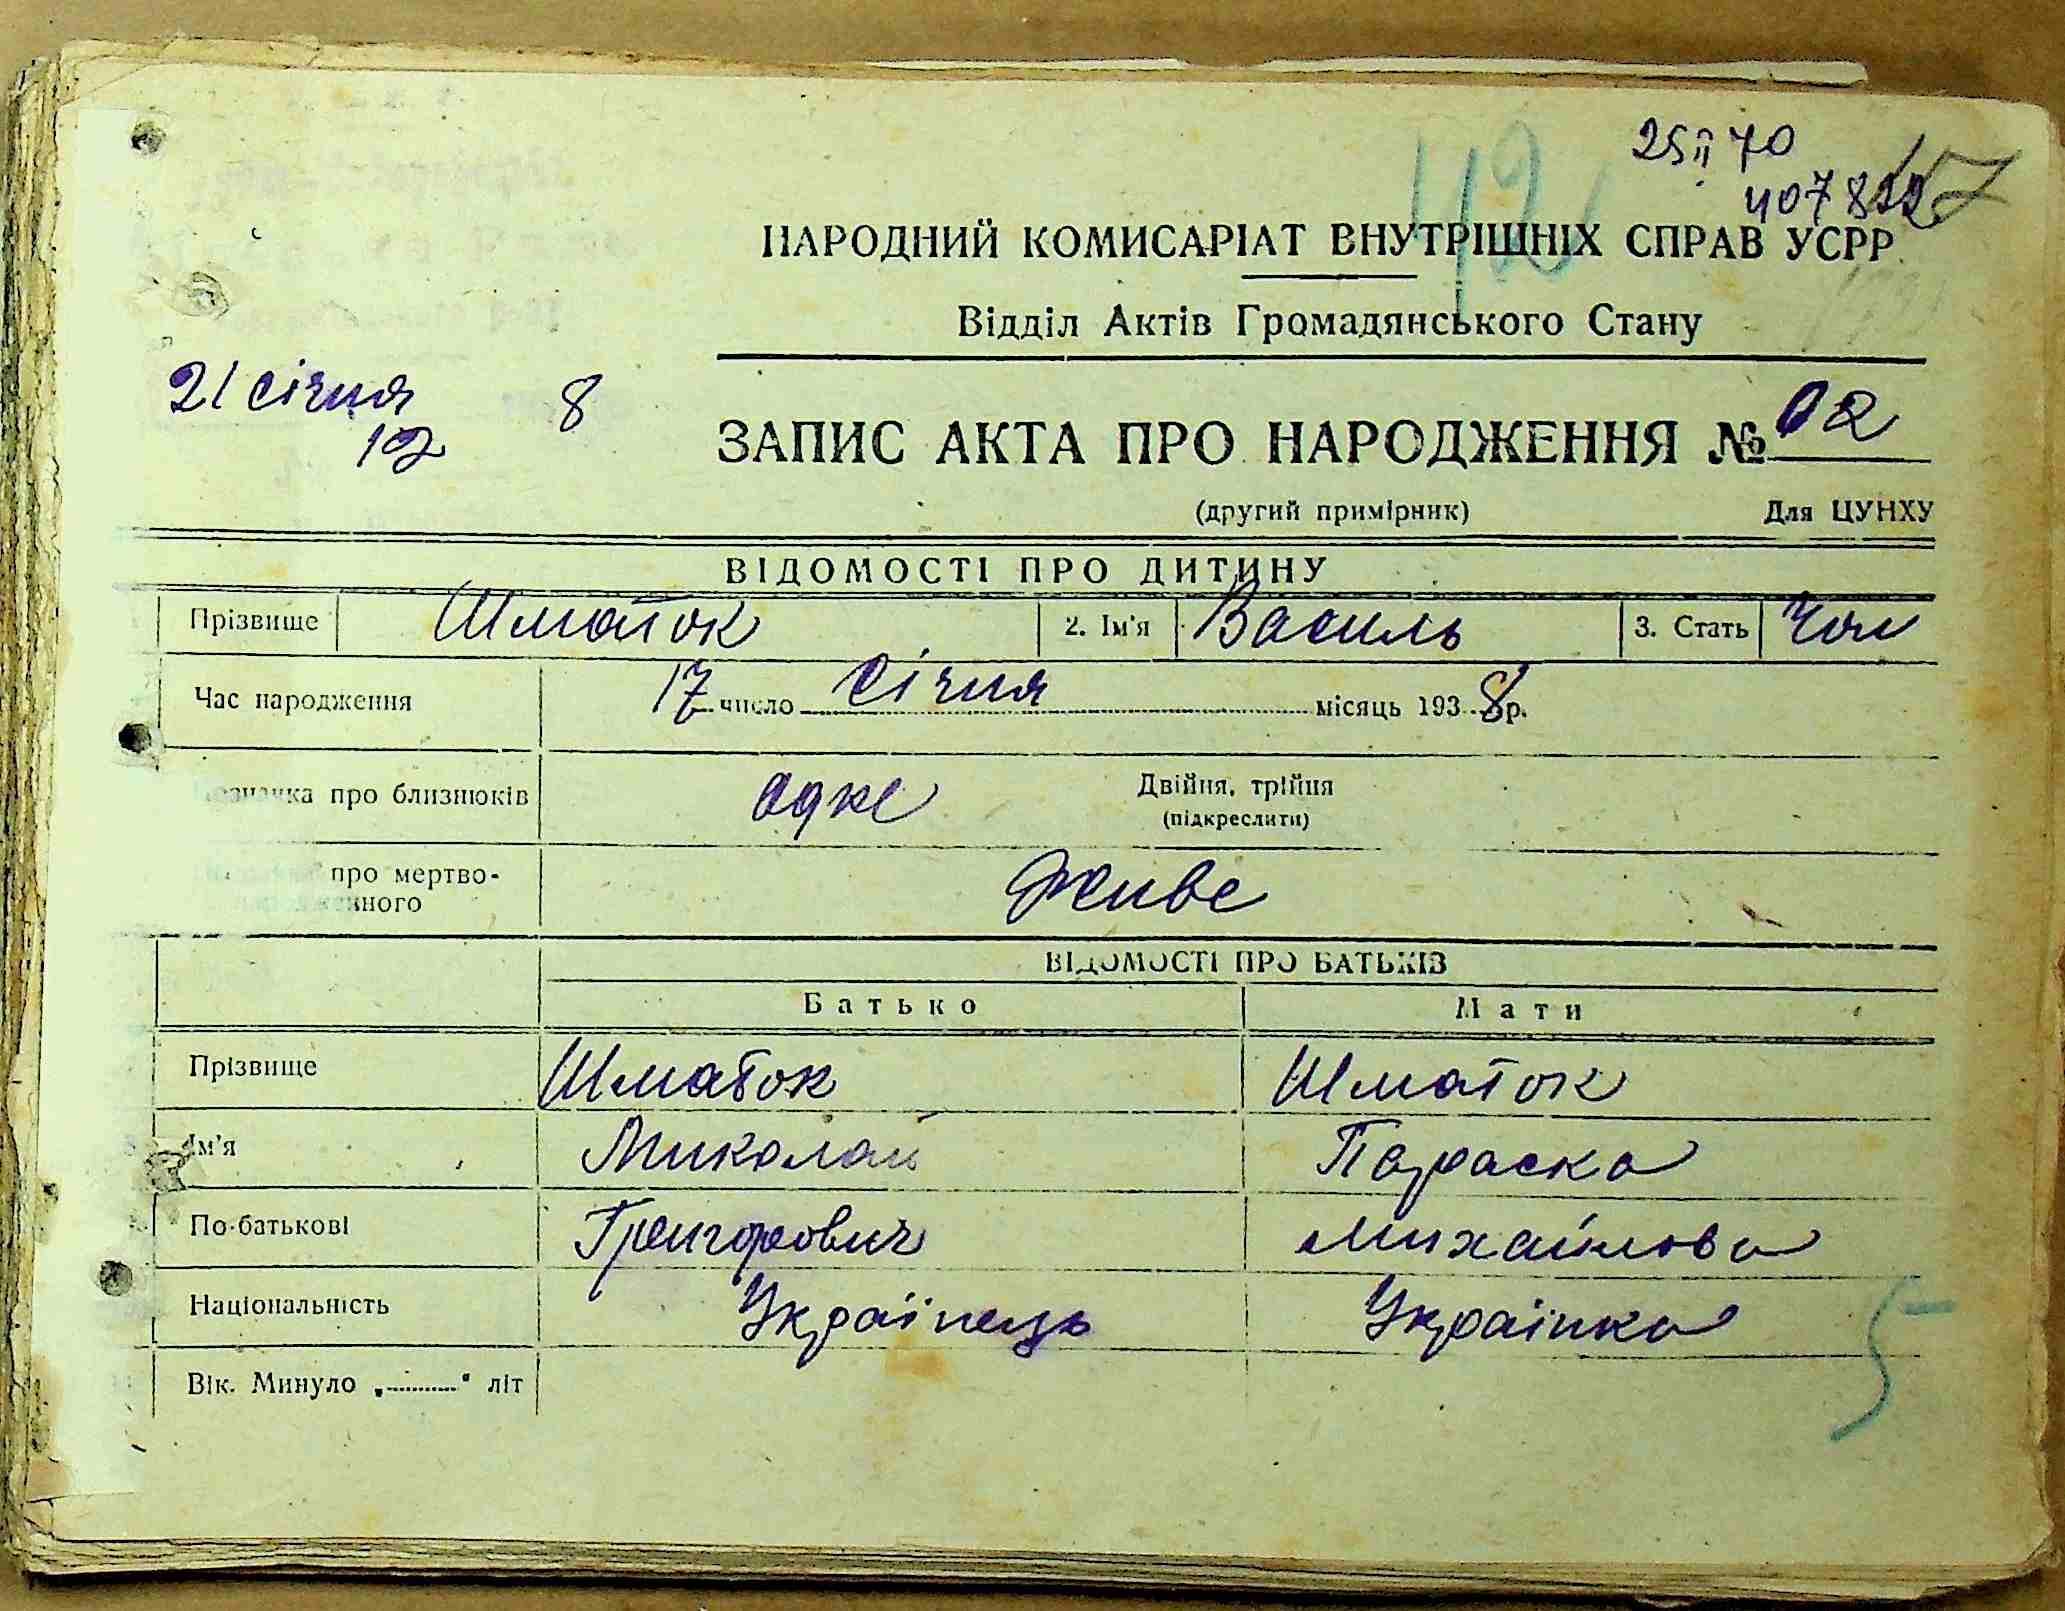 25 II 70
407822
42
НАРОДНИЙ КОМИСАРІАТ ВНУТРІШНІХ СПРАВ УСРР
Відділ Актів Громадянського Стану
21 січня 8
12
ЗАПИС АКТА ПРО НАРОДЖЕННЯ № 12
(другий примірник) Для ЦУНХУ
ВІДОМОСТІ ПРО ДИТИНУ
Прізвище Шматок 2. Ім'я Василь 3. Стать Чол
Час народження 17 число Січня місяць 1938 р.
про близнюків одне Двійня, трійня
(підкреслити)
про мертво- живе
ного
ВІДОМОСТІ ПРО БАТЬКІВ
Батько Мати
Прізвище Шматок Шматок
Ім'я Миколай Параска
По-батькові Григорович Михайлова
Національність Українець Українка
5
Вік. Минуло „..........“ літ